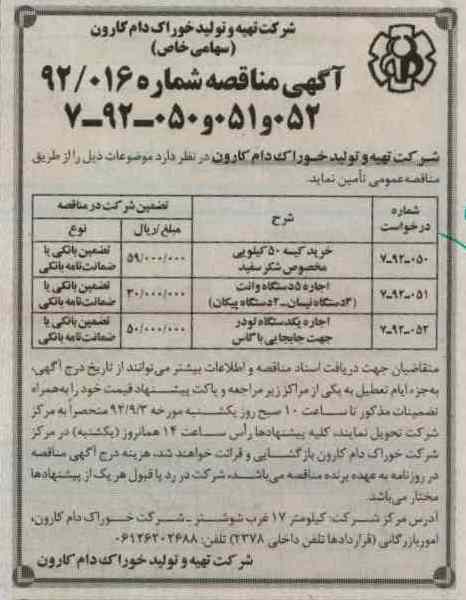 شرکت تهیه و تولید خوراک دام کارون
(سهامی خاص)
آگهی مناقصه شماره ۹۲/۰۱۶
۰۵۲ و ۰۵۱ و ۰۵۰-۹۲-۷
شرکت تهیه و تولید خوراک دام کارون در نظر دارد موضوعات ذیل را از طریق
مناقصه عمومی تأمین نماید.
شماره درخواست
شرح
تضمین شرکت در مناقصه
مبلغ/ریال
نوع
۷-۹۲-۰۵۰
خرید کیسه ۵۰ کیلویی
مخصوص شکر سفید
۵۹/۰۰۰/۰۰۰
تضمین بانکی یا
ضمانت‌نامه بانکی
۷-۹۲-۰۵۱
اجاره ۵ دستگاه وانت
(۳ دستگاه نیسان-۲ دستگاه پیکان)
۳۰/۰۰۰/۰۰۰
تضمین بانکی یا
ضمانت‌نامه بانکی
۷-۹۲-۰۵۲
اجاره یکدستگاه لودر
جهت جابجایی باگاس
۵۰/۰۰۰/۰۰۰
تضمین بانکی یا
ضمانت‌نامه بانکی
متقاضیان جهت دریافت اسناد مناقصه و اطلاعات بیشتر می‌توانند از تاریخ درج آگهی،
به‌جزء ایام تعطیل به یکی از مراکز زیر مراجعه و پاکت پیشنهاد قیمت خود را به‌همراه
تضمینات مذکور تا ساعت ۱۰ صبح روز یکشنبه مورخه ۹۲/۹/۳ منحصراً به مرکز
شرکت تحویل نمایند، کلیه پیشنهادها رأس ساعت ۱۴ همانروز (یکشنبه) در مرکز
شرکت خوراک دام کارون بازگشایی و قرائت خواهند شد، هزینه درج آگهی مناقصه
در روزنامه به عهده برنده مناقصه می‌باشد، شرکت در رد یا قبول هر یک از پیشنهادها
مختار می‌باشد.
آدرس مرکز شرکت: کیلومتر ۱۷ غرب شوشتر - شرکت خوراک دام کارون،
امور بازرگانی (قراردادها تلفن داخلی ۲۳۷۸) تلفن: ۰۶۱۲۶۲۰۲۶۸۸
شرکت تهیه و تولید خوراک دام کارون